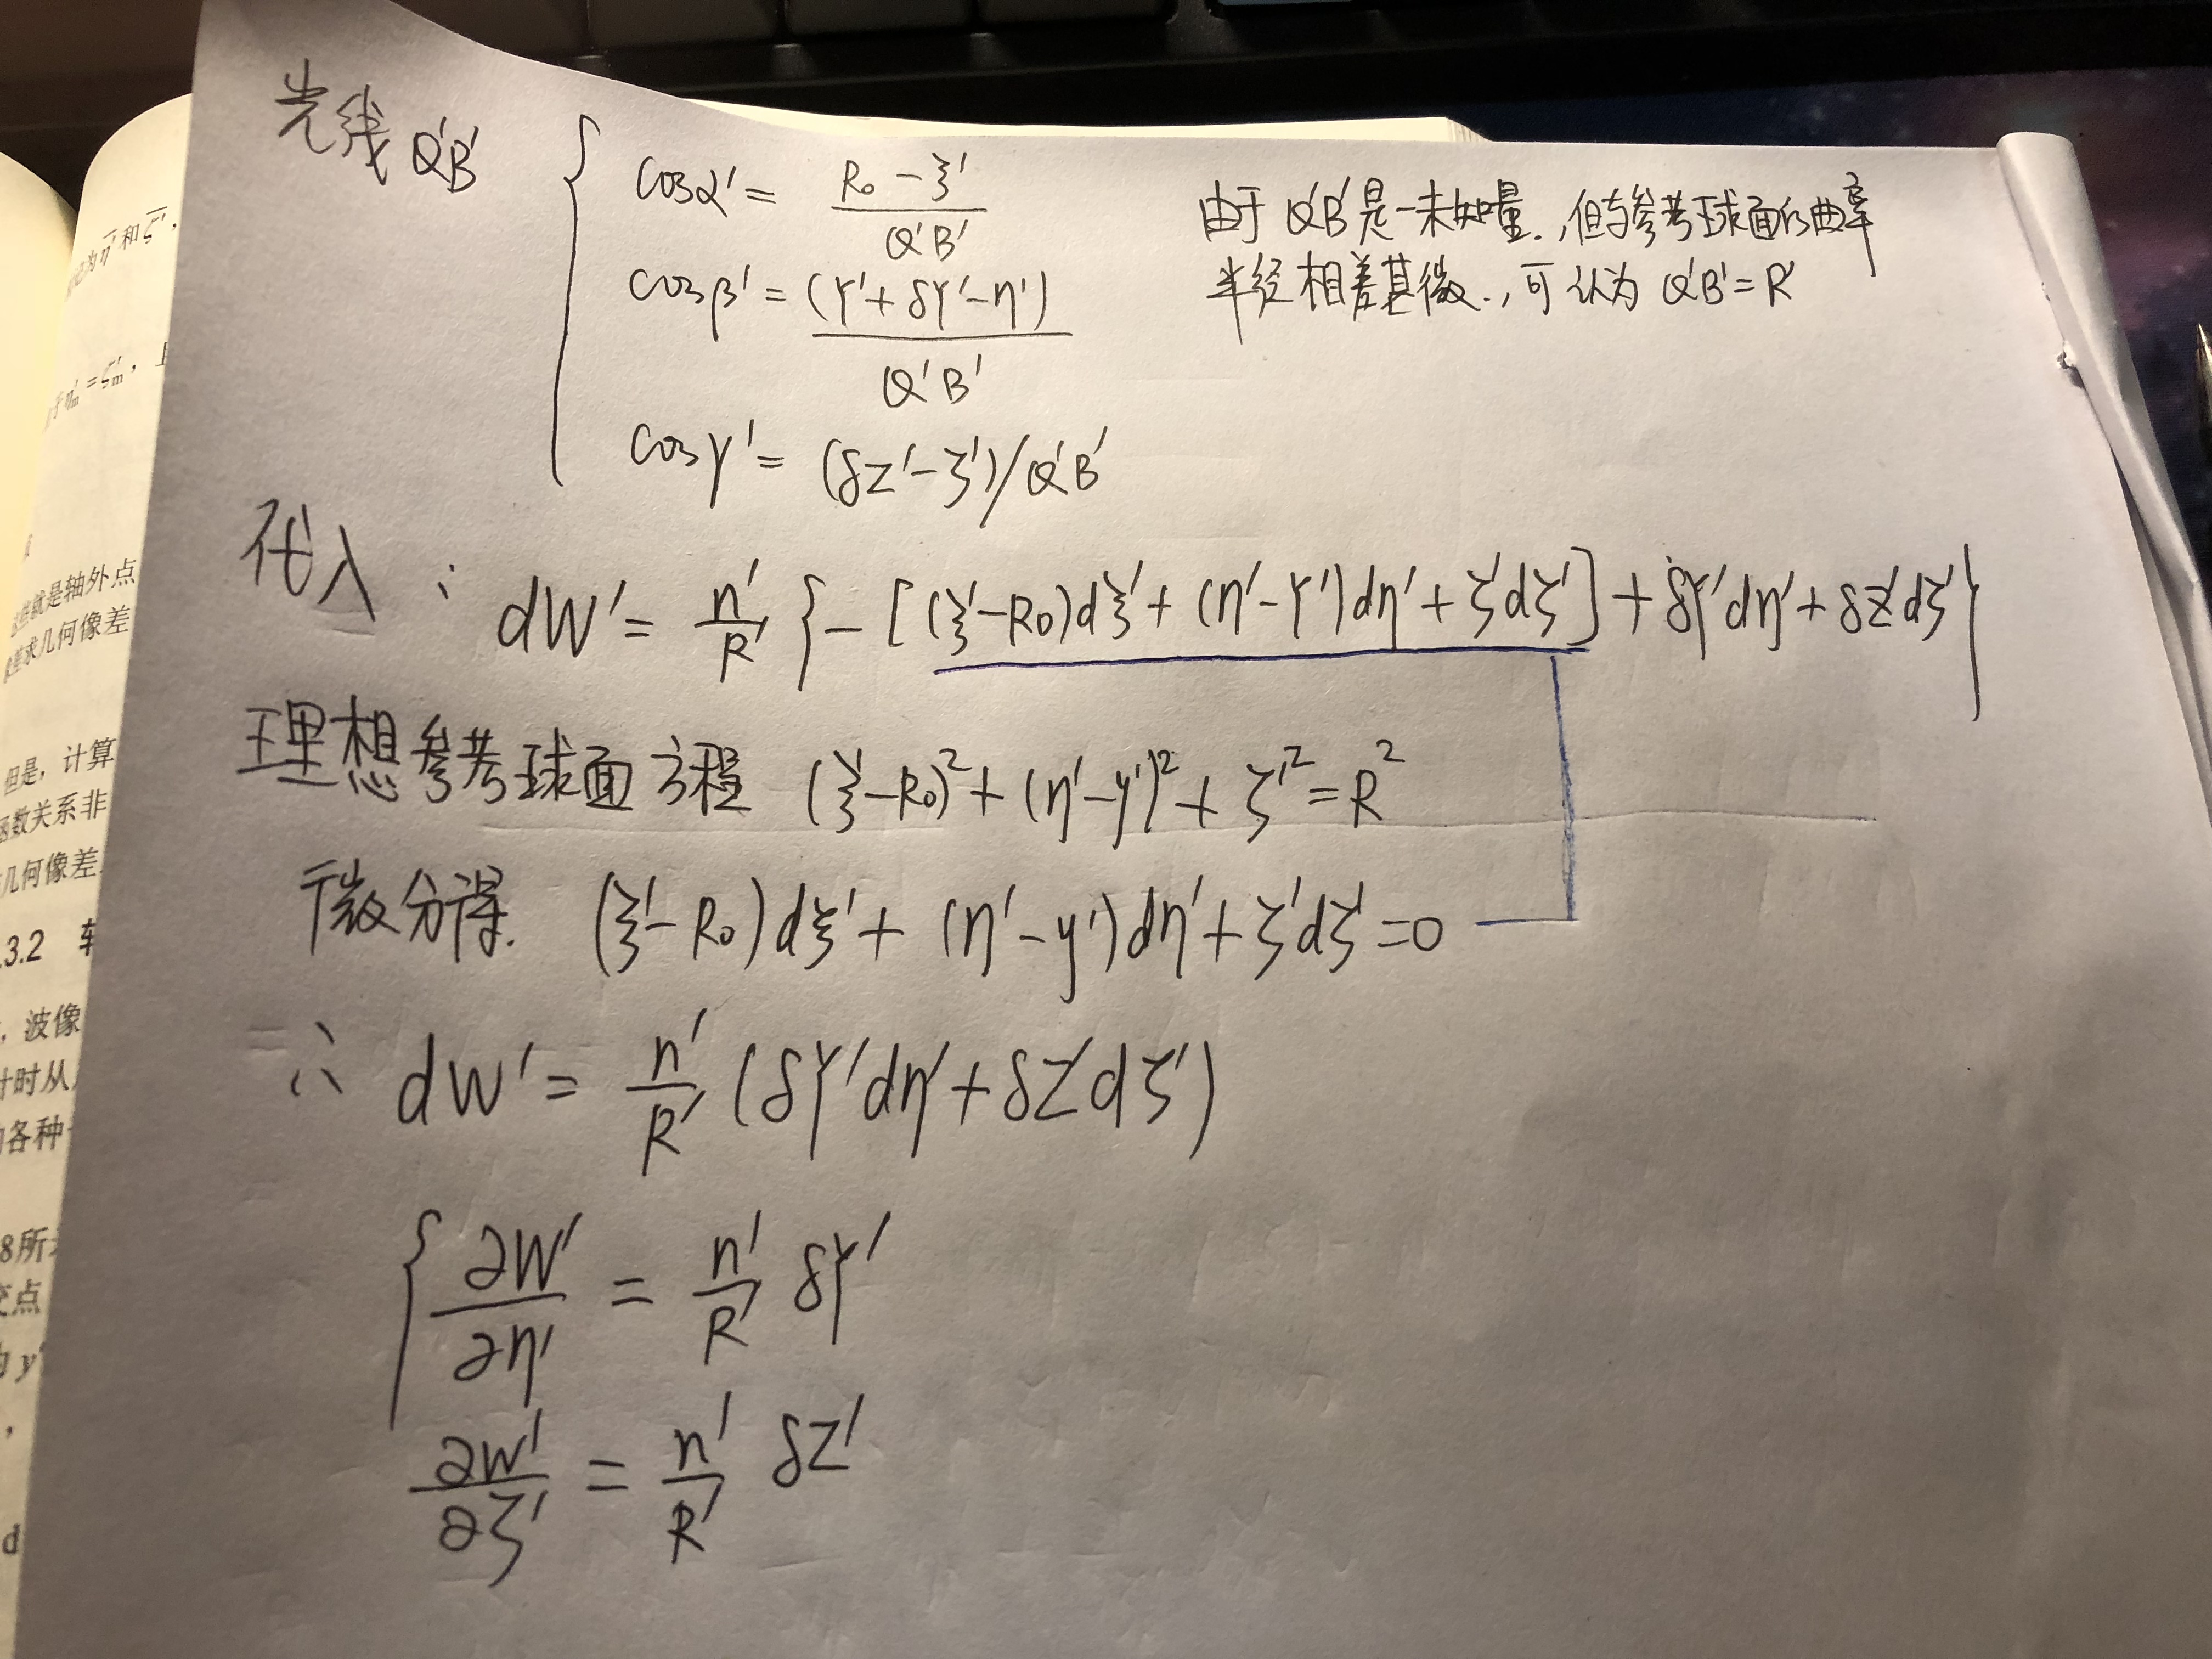 光线Q'B'
cosα' = (R₀ - ξ') / Q'B'
cosβ' = (Y' + δY' - η') / Q'B'
cosγ' = (δZ' - ζ')/Q'B'
由于Q'B'是一未知量.,但与参考球面的曲率
半径相差甚微.,可认为 Q'B'=R'
代入:
dW' = n'/R' {-[(ξ'-R₀)dξ' + (η'-Y')dη' + ζ'dζ'] + δY'dη' + δZ'dζ'}
理想参考球面方程 (ξ'-R₀)² + (η'-y')² + ζ'² = R²
微分得. (ξ'-R₀)dξ' + (η'-y')dη' + ζ'dζ' = 0
∴ dW' = n'/R' (δY'dη' + δZ'dζ')
∂W'/∂η' = n'/R' δY'
∂W'/∂ζ' = n'/R' δZ'
和
就是轴外点
求几何像差
但是,计算
函数关系非
几何像差
.3.2
,波像
计时从
各种
8所
交点
y'
d